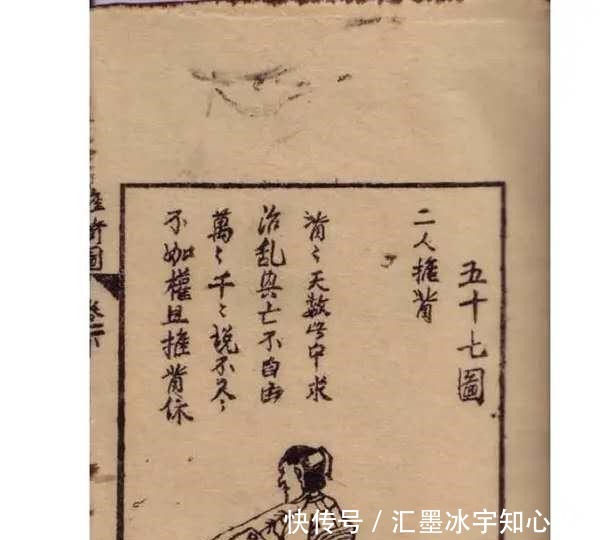 五十七圖
二人推背
背〻天數此中求
治乱興亡不自由
萬〻千〻說不尽
不如權且推背休
推背圖
卷二
快传号 / 汇墨冰宇知心